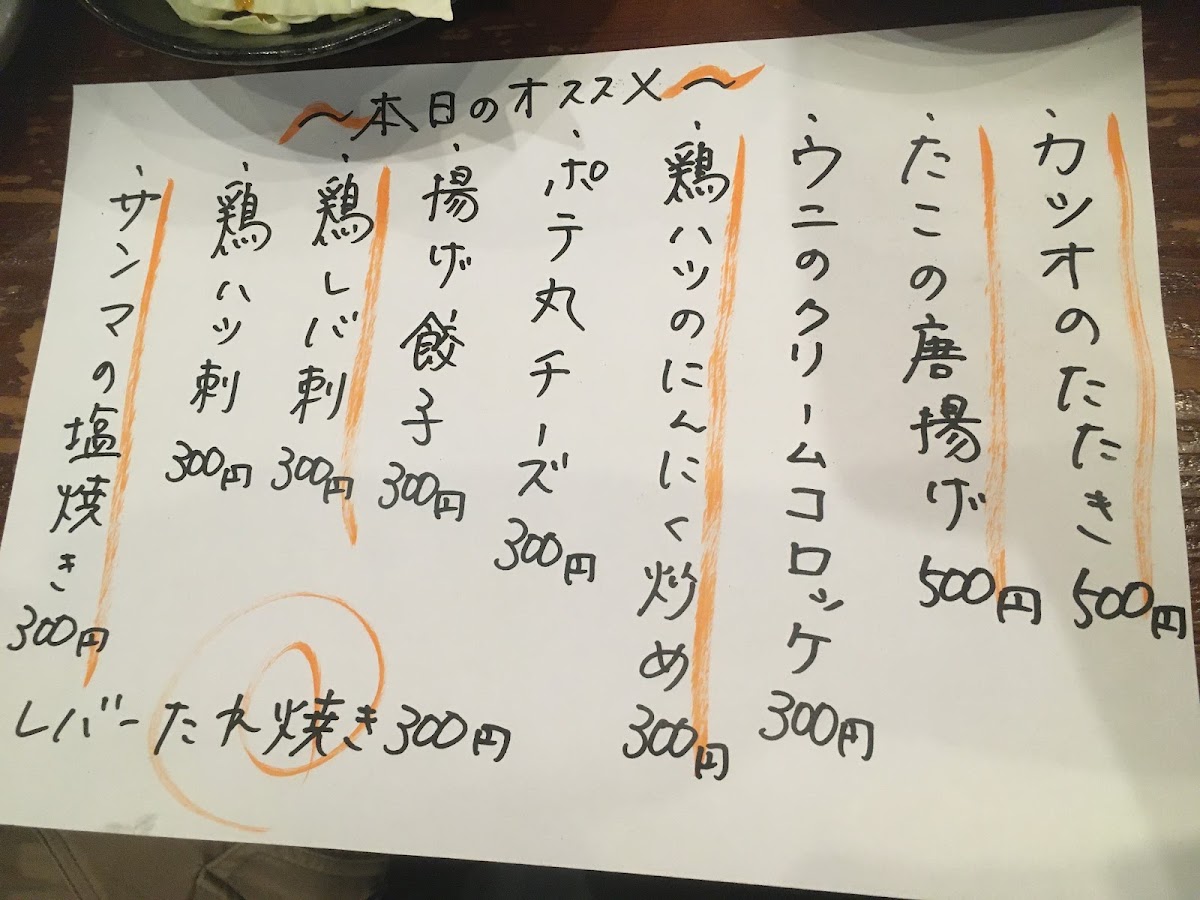 ～本日のオススメ～
・カツオのたたき 500円
・たこの唐揚げ 500円
・ウニのクリームコロッケ 300円
・鶏ハツのにんにく炒め 300円
・ポテ丸チーズ 300円
・揚げ餃子 300円
・鶏レバ刺 300円
・鶏ハツ刺 300円
・サンマの塩焼き 300円
レバーたれ焼き 300円